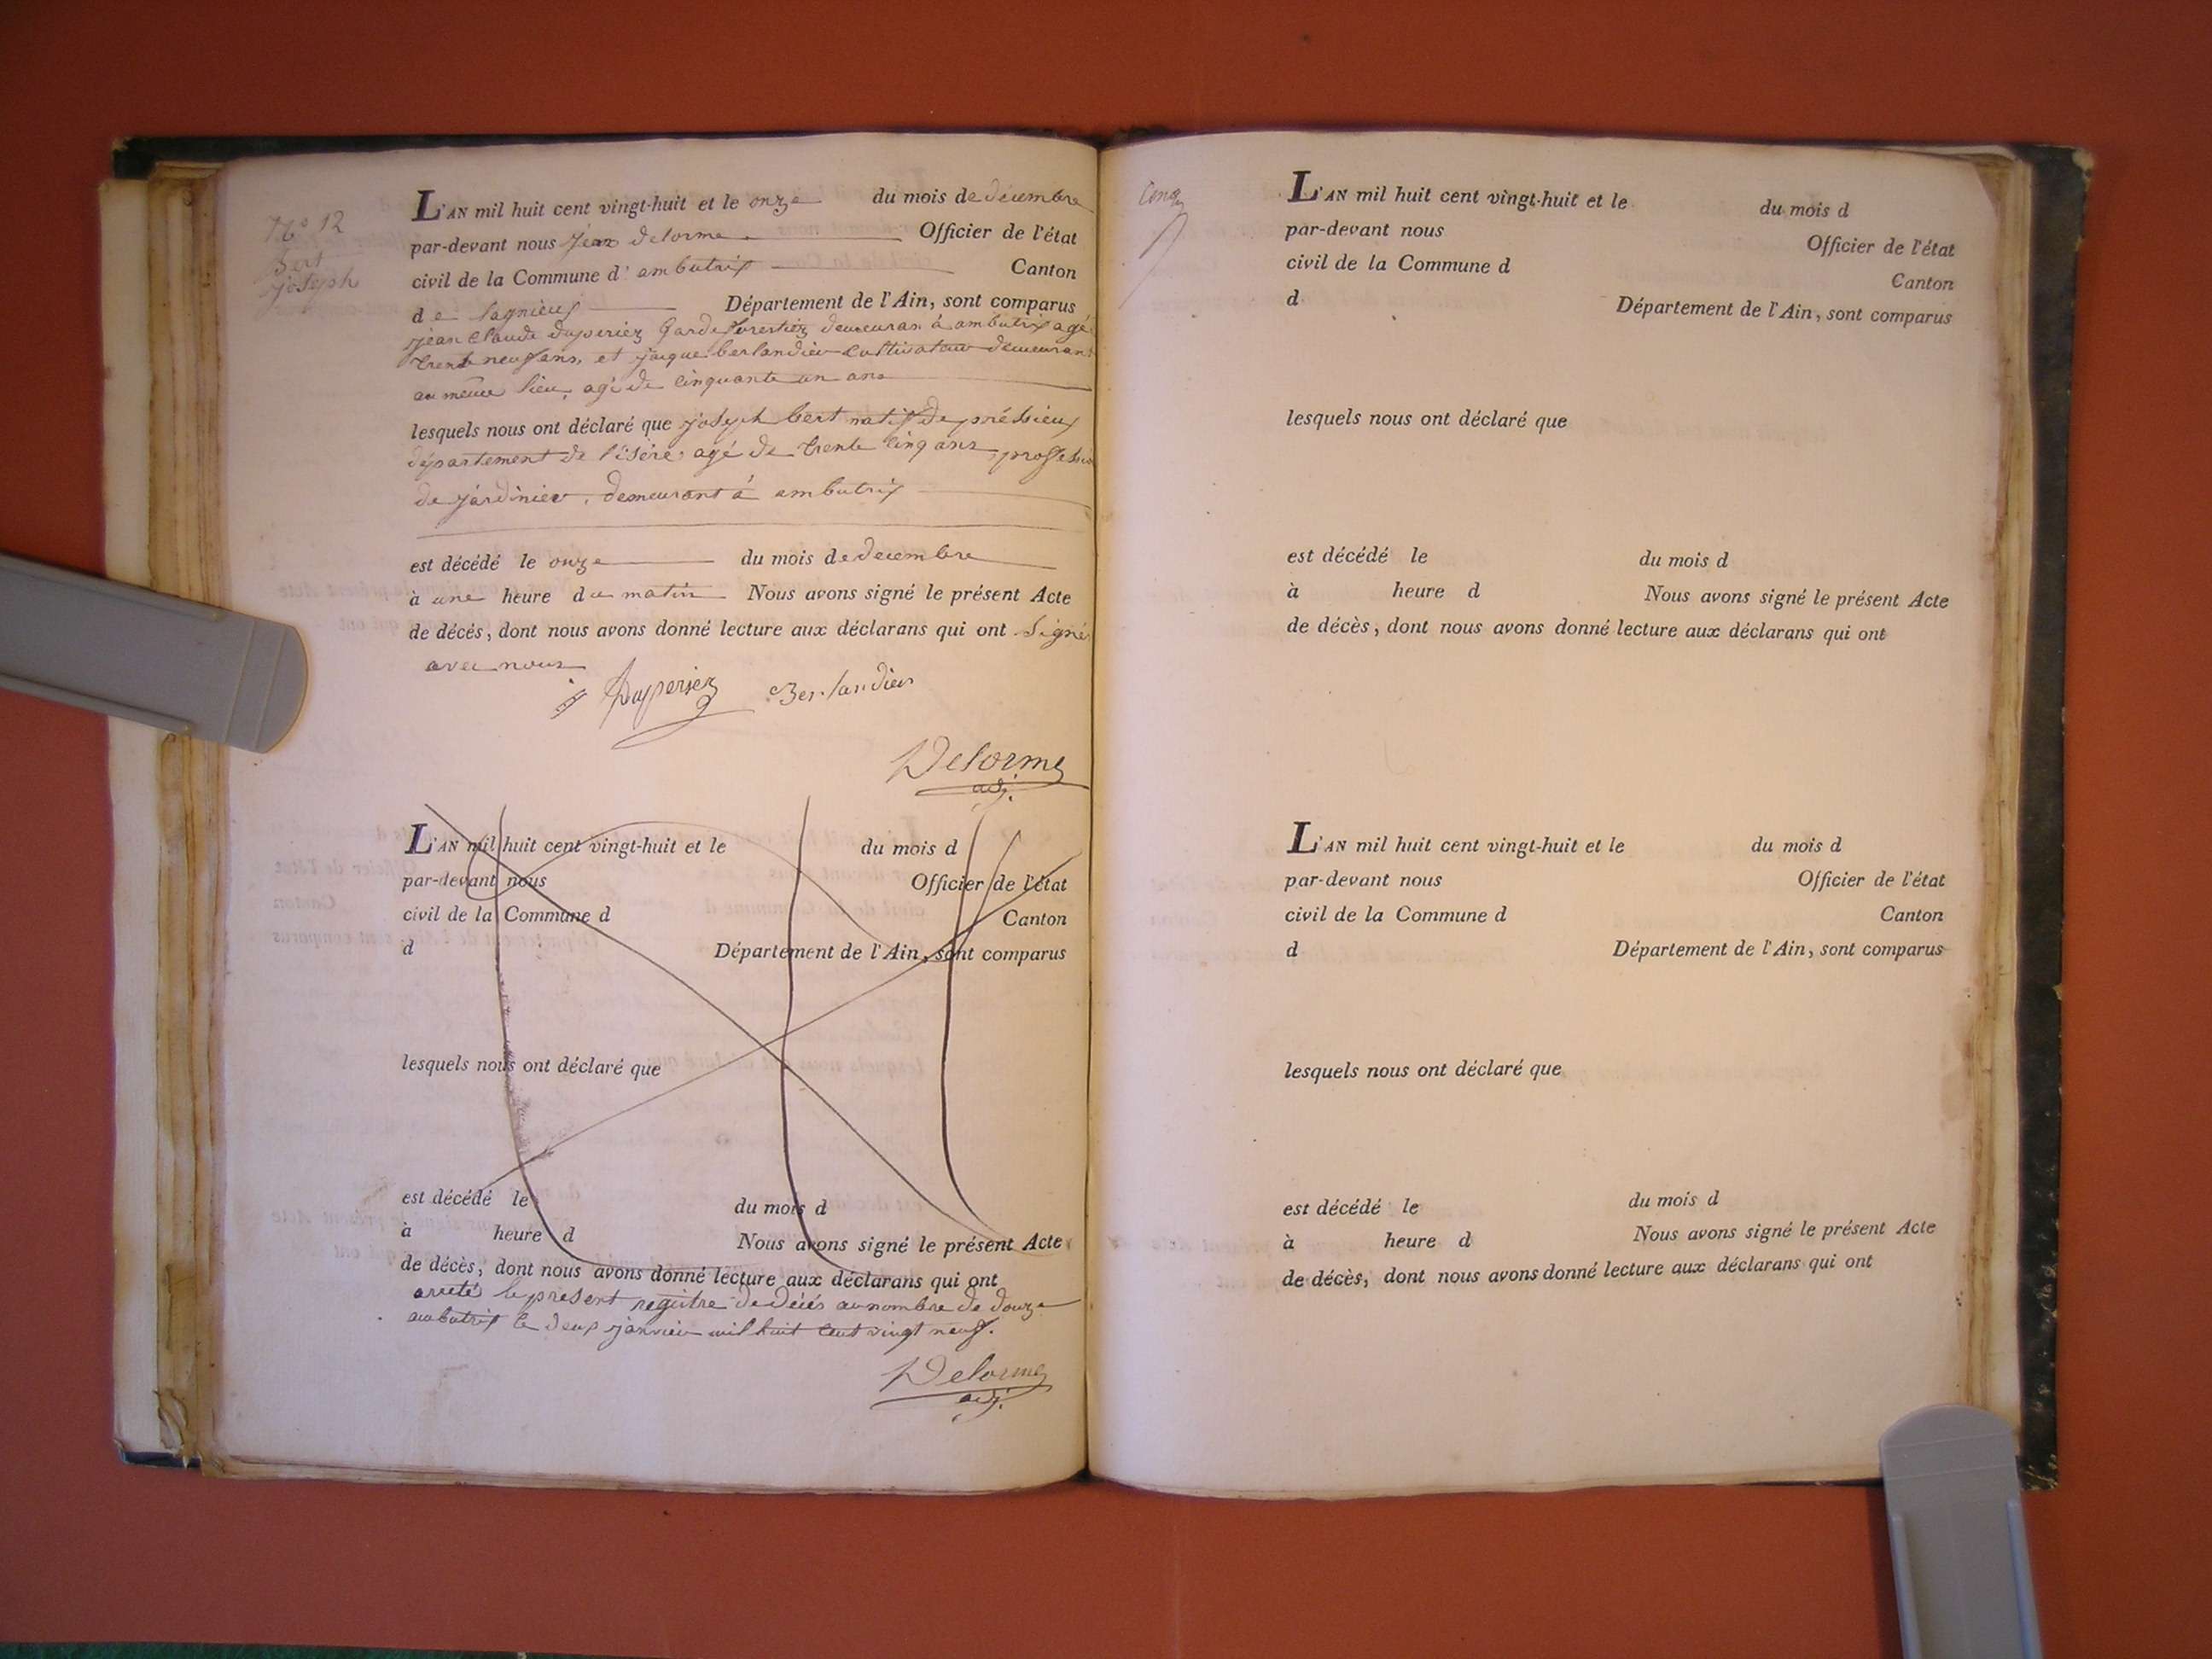 N° 12
Bert
joseph
L'AN mil huit cent vingt-huit et le onze du mois de décembre
par-devant nous jean delorme Officier de l'état
civil de la Commune d'ambutrix Canton
de lagnieux Département de l'Ain, sont comparus
jean Claude Dupperiez Garde forestiez demeuran à ambutrix agé
trente neuf ans, et jacque berlandier Cultivateur demeurant
au même lieu, agé de cinquante un ans
lesquels nous ont déclaré que joseph bert natif de préssieux
département de l'isère agé de trente cinq ans, professio
de jardinier, demeurant à ambutrix
est décédé le onze du mois de decembre
à une heure du matin Nous avons signé le présent Acte
de décés, dont nous avons donné lecture aux déclarans qui ont signé
avec nous
Dupperiez Berlandier
Delorme
adj.
L'AN mil huit cent vingt-huit et le du mois d
par-devant nous Officier de l'état
civil de la Commune d Canton
d Département de l'Ain, sont comparus
lesquels nous ont déclaré que
est décédé le du mois d
à heure d Nous avons signé le présent Acte
de décès, dont nous avons donné lecture aux déclarans qui ont
arreté le present registre de décés au nombre de douze
ambutrix le deux janvier mil huit cent vingt neuf.
Delorme
adj.
Cinq
L'AN mil huit cent vingt-huit et le du mois d
par-devant nous Officier de l'état
civil de la Commune d Canton
d Département de l'Ain, sont comparus
lesquels nous ont déclaré que
est décédé le du mois d
à heure d Nous avons signé le présent Acte
de décès, dont nous avons donné lecture aux déclarans qui ont
L'AN mil huit cent vingt-huit et le du mois d
par-devant nous Officier de l'état
civil de la Commune d Canton
d Département de l'Ain, sont comparus
lesquels nous ont déclaré que
est décédé le du mois d
à heure d Nous avons signé le présent Acte
de décès, dont nous avons donné lecture aux déclarans qui ont